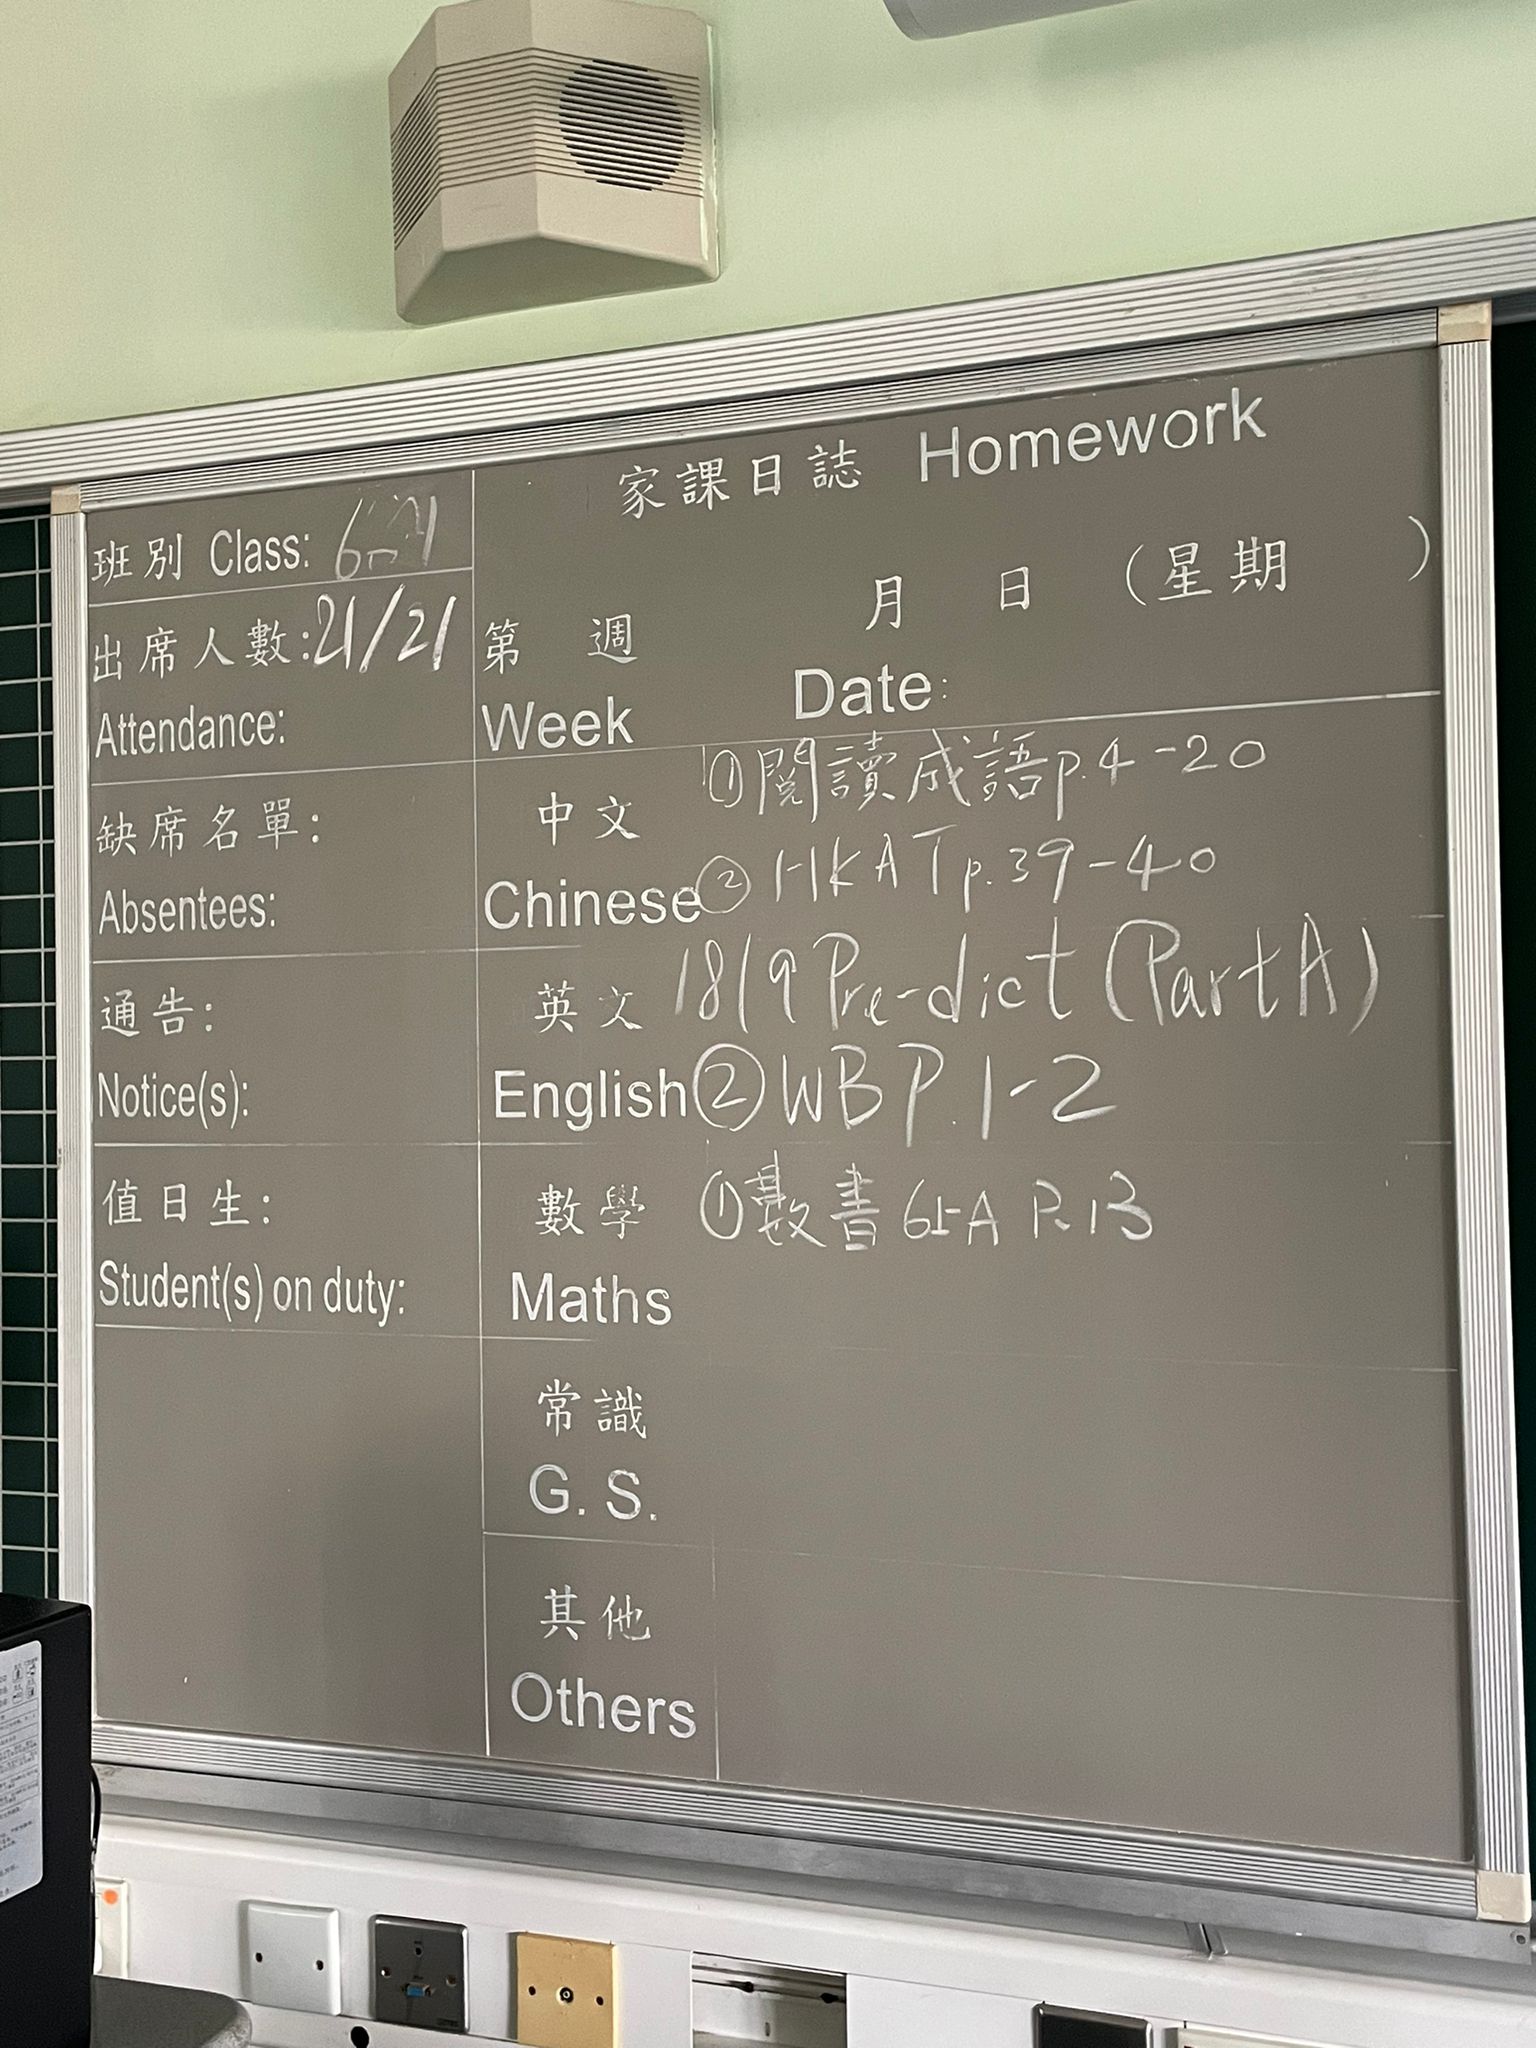 家課日誌 Homework
班別 Class:
出席人數: 21/21
Attendance:
第 週 月 日 (星期 )
Week Date:
缺席名單:
Absentees:
通告:
Notice(s):
值日生:
Student(s) on duty:
中文 ①閱讀成語p.4-20
Chinese ② HKAT p.39-40
英文 18/9 Pre-dict (Part A)
English ② WB P.1-2
數學 ①數書 A P.13
Maths
常識
G. S.
其他
Others